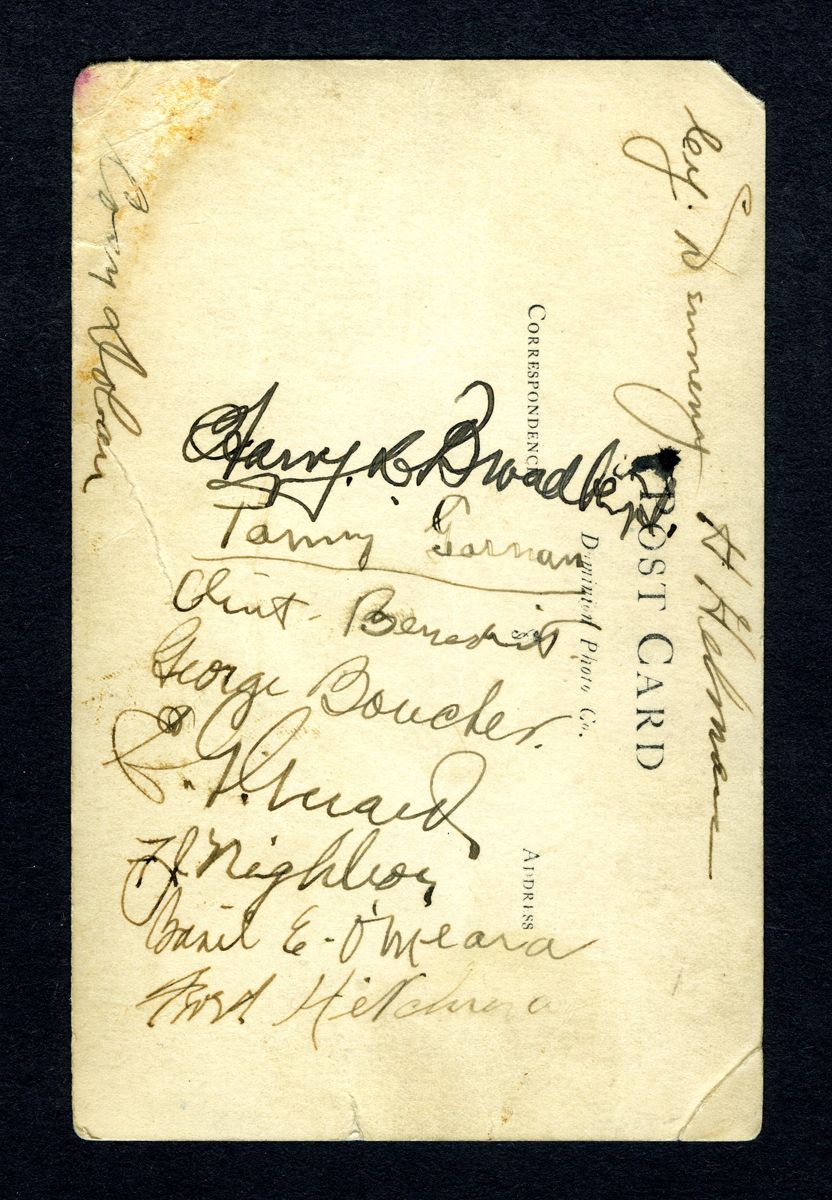 Cy. Denneny
H Helman
POST CARD
CORRESPONDENCE
Dominion Photo Co.
ADDRESS
Harry L. Broadbent.
Tommy Gorman
Clint. Benedict
George Boucher.
E. G. Gerard
F J Nighbor
Basil E. O'Meara
Cozy Dolan